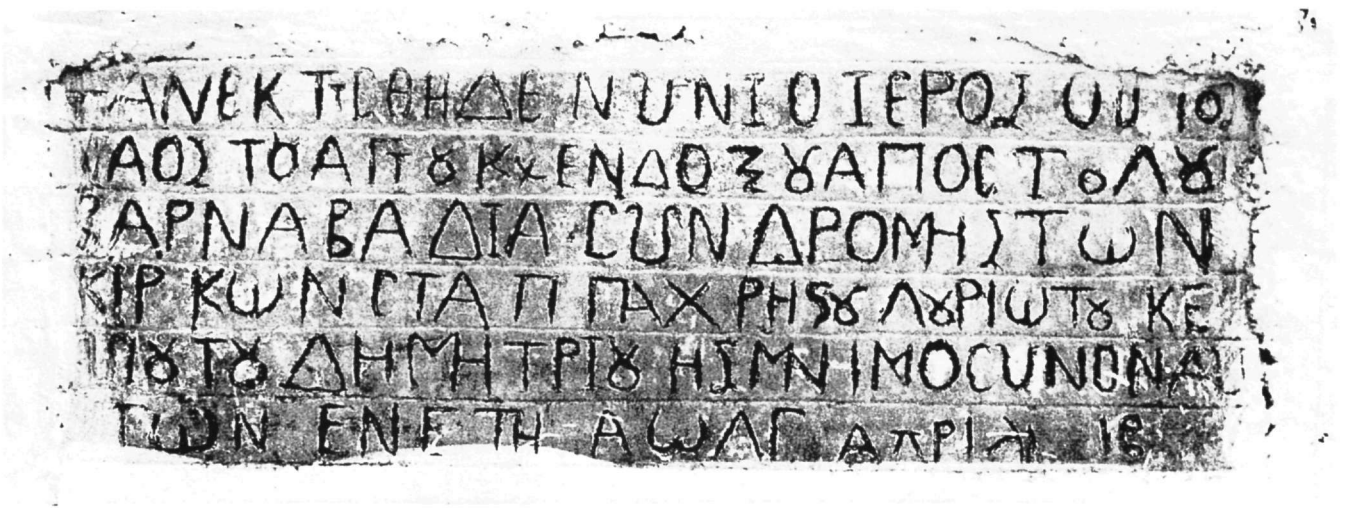 ΑΝΕΚΤΙCΘΗ ΔΕ ΝΥΝΙ Ο ΙΕΡΟΣ
ΝΑΟΣ ΤȢ ΑΓΙȢ Κ ΕΝΔΟΞȢ ΑΠΟCΤΟΛȢ
ΒΑΡΝΑΒΑ ΔΙΑ CΥΝΔΡΟΜΗΣ ΤΩΝ
ΚΙΡ ΚΩΝCΤΑΤΙ ΠΑΧΡΗSȢ ΛȢΡΙΩΤȢ ΚΕ
ΤȢ ΔΗΜΗΤΡΙȢ ΗΣ ΜΝΙΜΟCΥΝΟΝ
ΤΩΝ ΕΝ ΕΤΗ ΑΩΛΓ ΑΠΡΙΛ ΙΒ